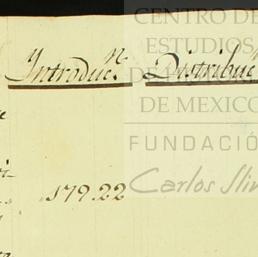 CENTRO DE
ESTUDIOS
DE MEXICO
FUNDACIÓ
Carlos Slim
Introduc.n Distribuc
179.22